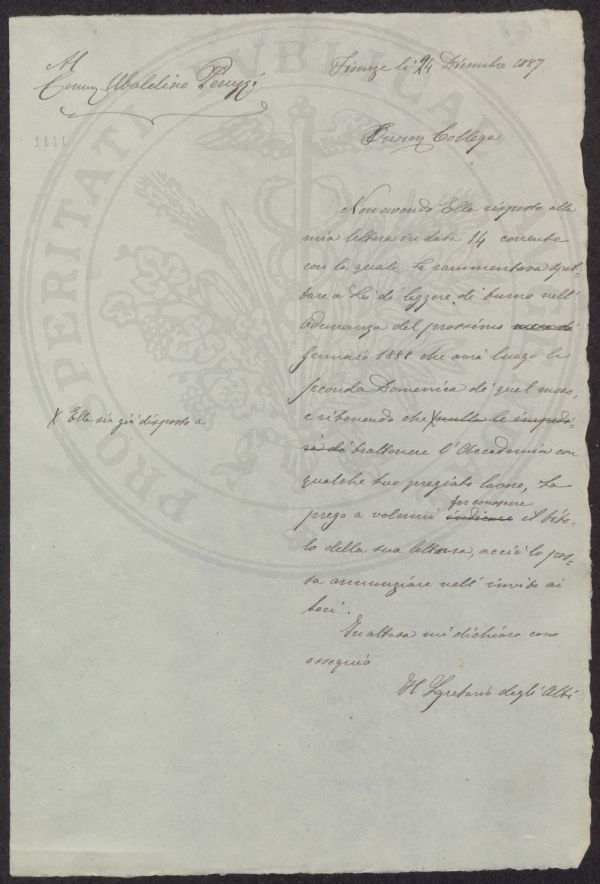 Al
Comm Ubaldino Peruzzi
Firenze li 24 Dicembre 1887
1111
Collega
Non avendo Ella risposto alla
mia lettera in data 14 corrente
con la quale Le rammentava spet-
tare a Lei di leggere di turno nell'
adunanza del prossimo mese di
Gennaio 1888 che avrà luogo la
seconda Domenica di quel mese,
e ritenendo che X nulla le impedi-
rà di trattenere l'Accademia con
X Ella sia già disposto a
qualche suo pregiato lavoro, La
prego a volermi indicare far conoscere il tito-
lo della sua lettura, acciò lo pos-
sa annunziare nell'invito ai
Soci.
In attesa mi dichiaro con
ossequio
Il Segretario degli Atti
PROSPERITATI PUBLICAE